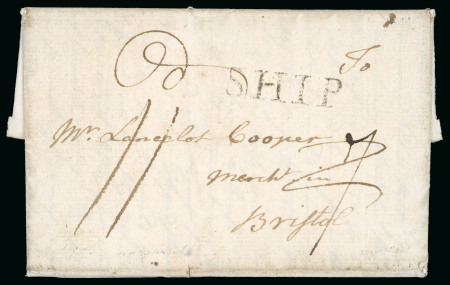 To
SHIP
Mr. Lancelot Cooper
Mercht. in
Bristol